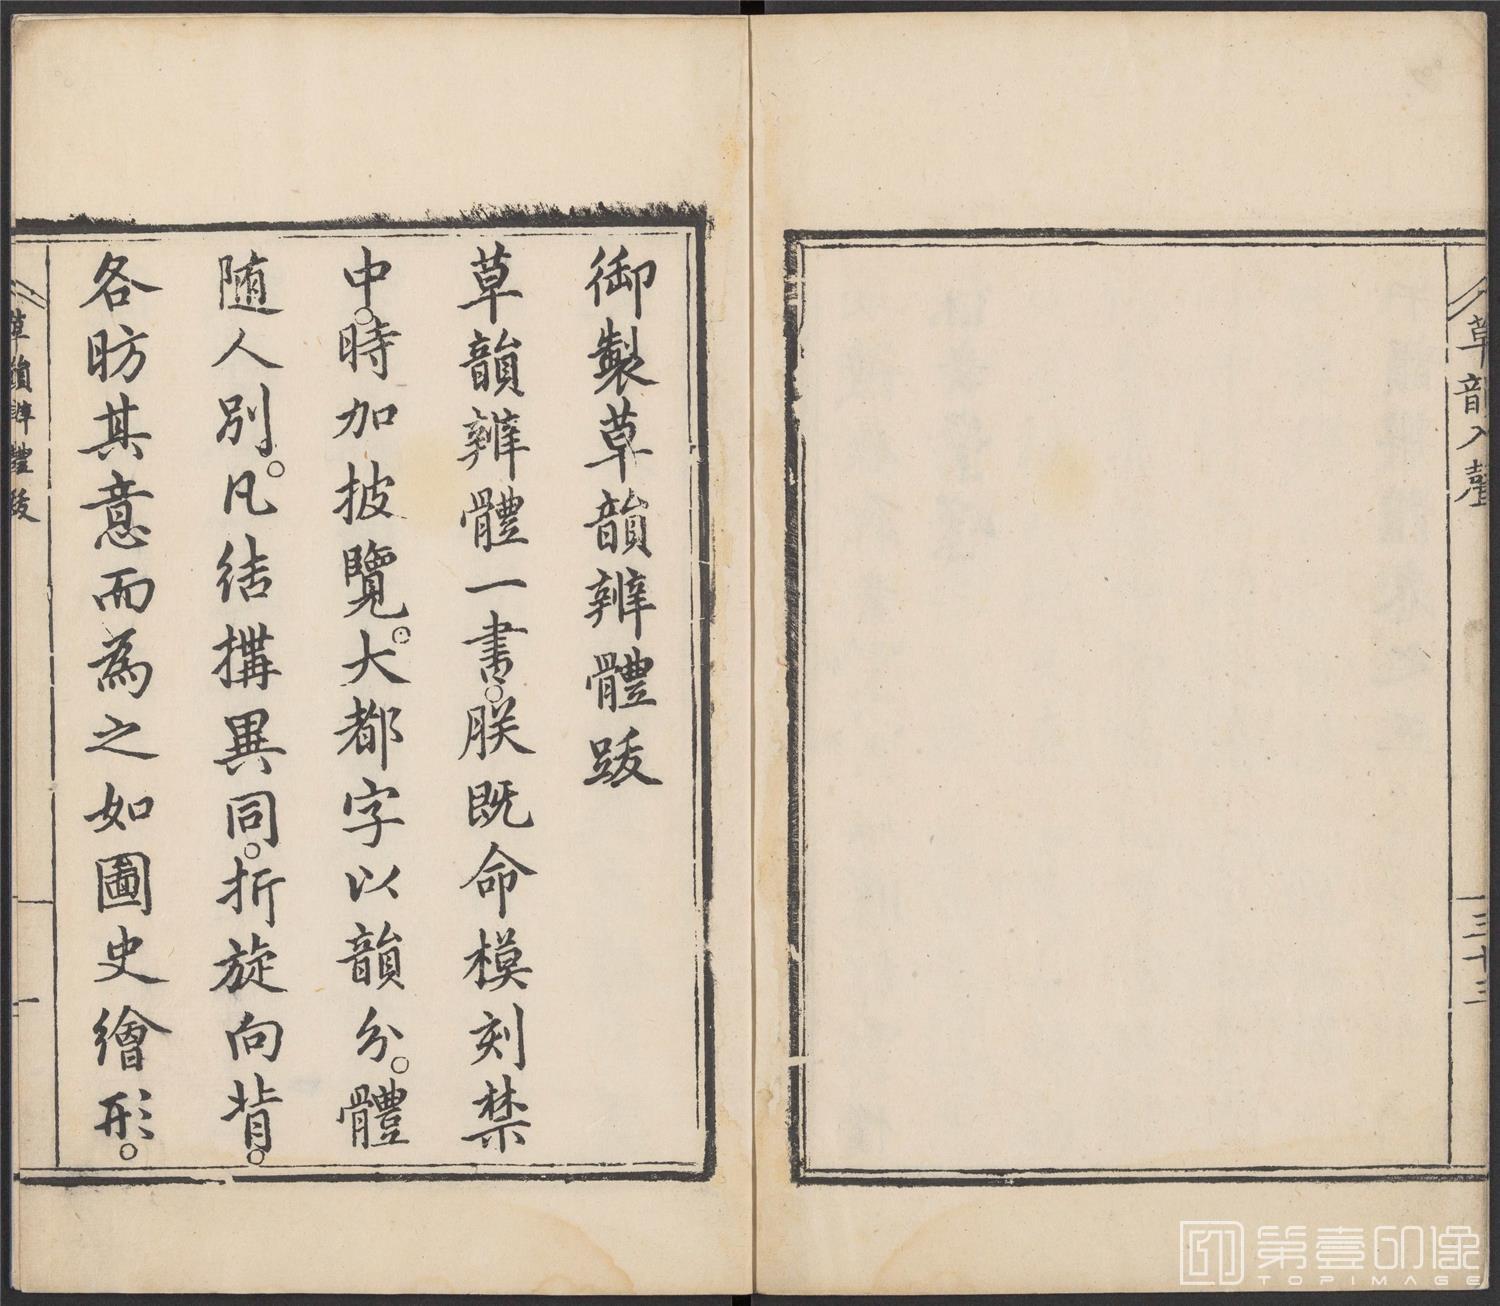 草韻入聲
三十三
御製草韻辨體跋
草韻辨體一書。朕既命模刻禁
中。時加披覽。大都字以韻分。體
隨人別。凡結構異同。折旋向背。
各昉其意而為之如圖史繪形。
草韻辨體跋
一
第壹印像
TOPIMAGE